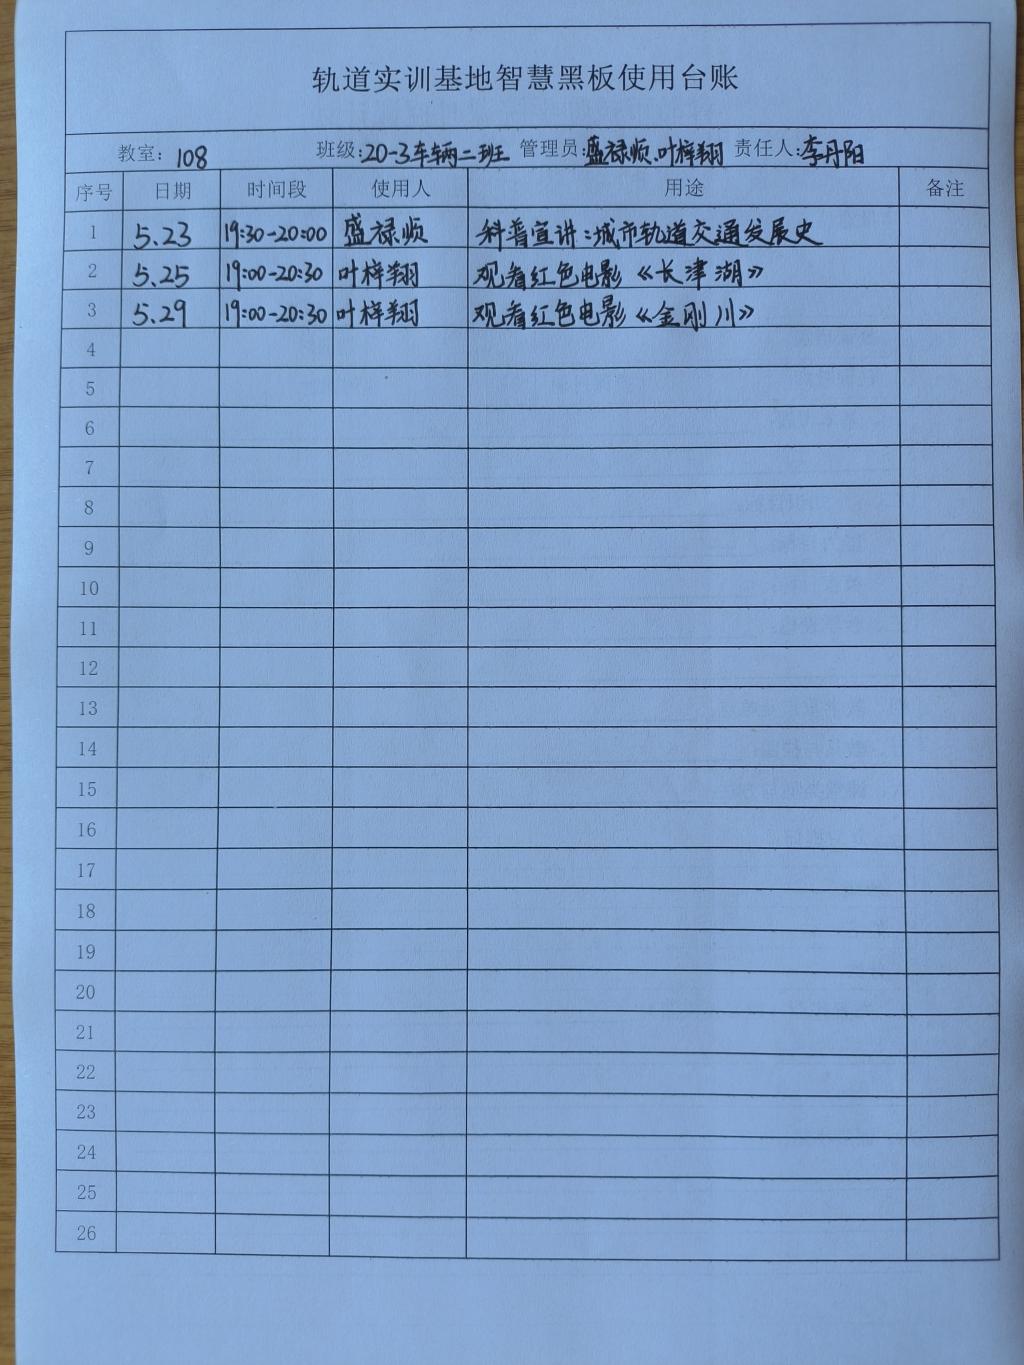 轨道实训基地智慧黑板使用台账
教室：108 班级：20-3车辆二班 管理员：盛禄顺、叶梓翔 责任人：李丹阳
序号 日期 时间段 使用人 用途 备注
1 5.23 19:30-20:00 盛禄顺 科普宣讲：城市轨道交通发展史
2 5.25 19:00-20:30 叶梓翔 观看红色电影《长津湖》
3 5.29 19:00-20:30 叶梓翔 观看红色电影《金刚川》
4
5
6
7
8
9
10
11
12
13
14
15
16
17
18
19
20
21
22
23
24
25
26